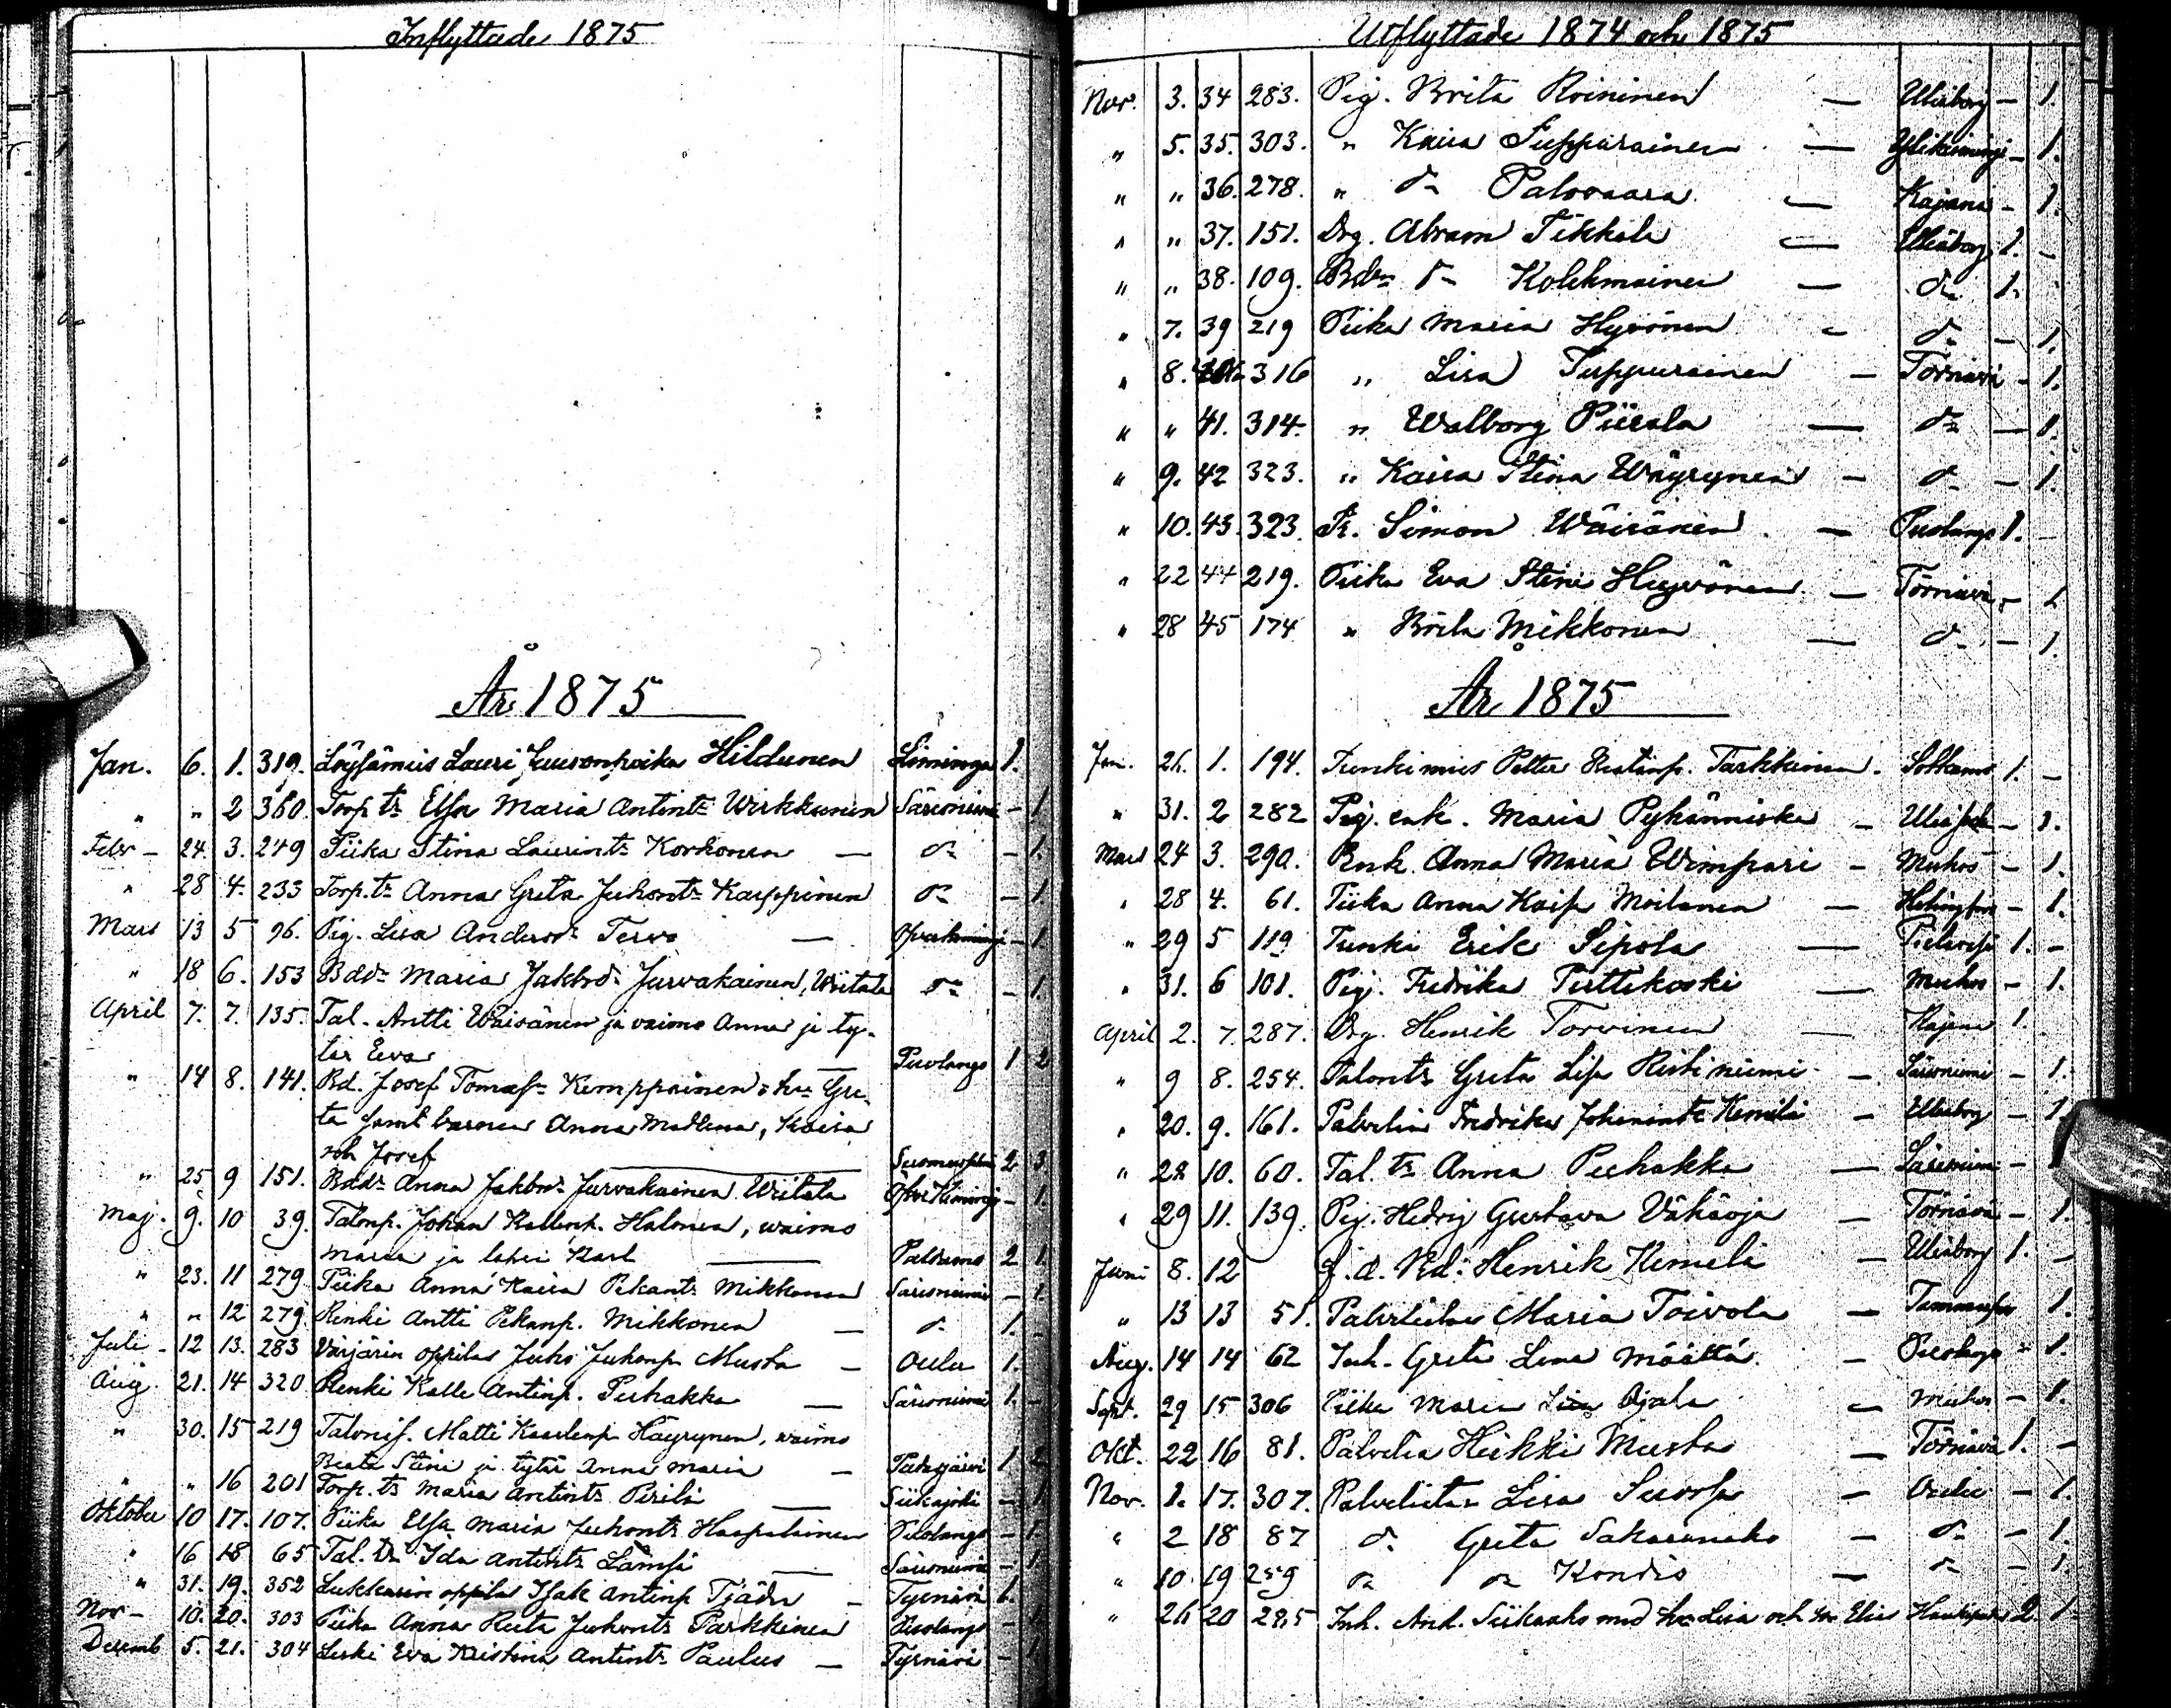 Inflyttade 1875
År 1875
Jan. 6. 1. 319. Löysämies Lauri Juusonpoika Hildunen Liminga 1.
" " 2 360. Torp. tr Elsa Maria Antintr Wirkkunen Säresniemi - 1.
Febr - 24. 3. 249 Piika Stina Laurintr Korhonen — do - 1.
" 28 4. 233 Torp. tr Anna Greta Juhontr Karppinen do - 1.
Mars 13 5 96. Pig. Lisa Andersdr Tervo — - 1.
" 18 6. 153 Bddr Maria Jakbsdr Jurvakainen, Wiitala do - 1.
April 7. 7. 135. Tal. Antti Wäisänen ja vaimo Anna ja ty-
tär Eva Puolango 1 2
" 14 8. 141. Bd. Josef Tomass Kemppainen o hu Gre-
ta samt barnen Anna Madlena, Kaisa
och Josef 2 3
" 25 9 151. Bddr Anna Jakbsdr Jurvakainen Wiitala Öfver Kiminge - 1.
Maj. 9. 10 39. Talonp. Johan Kallenp. Halonen, waimo
Maria ja lapsi Karl — Paldamo 2 1
" 23. 11 279 Piika Anna Kaisa Pekantr Mikkonen Säresniemi - 1.
" " 12 279 Renki Antti Pekanp. Mikkonen — do 1. -
Juli - 12 13. 283 Värjärin oppilas Juho Juhonp. Musta - Oulu 1.
Aug. 21. 14 320 Renki Kalle Antinp. Puhakka — Säresniemi 1. -
" 30. 15 219 Matti Kaarlenp Häyrynen, waimo
Beata Stina ja tytär Anna Maria — 1 2
" " 16 201 Torp. tr Maria Antintr Perilä — Siikajoki - 1
Oktober 10 17. 107. Piika Elsa Maria Juhontr Haapalainen Puolango - 1.
" 16 18 65 Tal. tr Ida Antintr Lämsä — Säresniemi - 1.
" 31. 19. 352 Lukkarin oppilas Isak Antinp Tjäder - Tyrnävä 1.
Nov - 10. 20. 303 Piika Anna Reeta Juhontr Parkkinen Puolango - 1
Decemb 5. 21. 304 Leski Eva Kristina Antintr Paulus — Tyrnävä - 1
Utflyttade 1874 och 1875
Nov. 3. 34 283. Pig. Brita Roininen — Uleåborg - 1.
" 5. 35. 303. " Kaisa Tuppurainen — Ylikiiminge - 1.
" " 36. 278. " do Palovaara — Kajana - 1.
" " 37. 151. Drg. Abram Tikkala — Uleåborg 1. -
" " 38. 109. Bdsn do Kolehmainen — do 1.
" 7. 39 219 Piika Maria Hyvönen - do - 1.
" 8. 316 " Lisa Tuppurainen - Törnävä - 1.
" " 41. 314. " Walborg Piirala — do - 1.
" 9. 42 323. " Kaisa Stina Wäyrynen - do - 1.
" 10. 43. 323. Tr. Simon Wäisänen - Puolango 1. -
" 22 44 219. Piika Eva Stina Hyyvönen - Törnävä - 1
" 28 45 174 " Brita Mikkonen — do - 1.
År 1875
Jan. 26. 1. 194. Renkimies Petter Tarkkinen. Sotkamo 1. -
" 31. 2 282 Pig. enk. Maria Pyhänniska - - 1.
Mars 24 3. 290. Enk. Anna Maria Wimpari - Muhos - 1.
" 28 4. 61. Piika Anna Kaisa Moilanen — Helsingfors - 1.
" 29 5 119 Renki Erik Sipola — 1. -
" 31. 6 101. Pig. Fredrika Perttikoski — Muhos - 1.
April 2. 7. 287. Drg. Henrik Torvinen — Kajana 1.
" 9 8. 254. Talontr Greta Lisa Ristiniemi - Säresniemi - 1.
" 20. 9. 161. Palvelia Fredrika Johanintr Kemilä - Uleåborg - 1.
" 28 10. 60. Tal. tr Anna Puhakka — Säresniemi - 1
" 29 11. 139. Pig. Hedvig Gustava Vähäoja - Törnävä - 1.
Juni 8. 12 F. d. Bd. Henrik Kemilä - Uleåborg 1. -
" 13 13 51. Palvelias Maria Toivola - Tammerfors 1.
Aug. 14 14 62 Inh. Greta Lena Määttä. - Puolango - 1.
Sept. 29 15 306 Piika Maria Lisa Ojala - Muhos - 1.
Okt. 22 16 81. Palvelia Heikki Musta — Törnävä 1. -
Nov. 1. 17. 307. Palvelia Lisa Suorsa - Oulu - 1.
" 2 18 87 do Greta Sakaranaho - do - 1.
" 10 19 259 do do Kondio — do - 1.
" 26 20 285 Inh. And. Siikaaho med hu Lisa och son Elias Haukipudas 2 1.